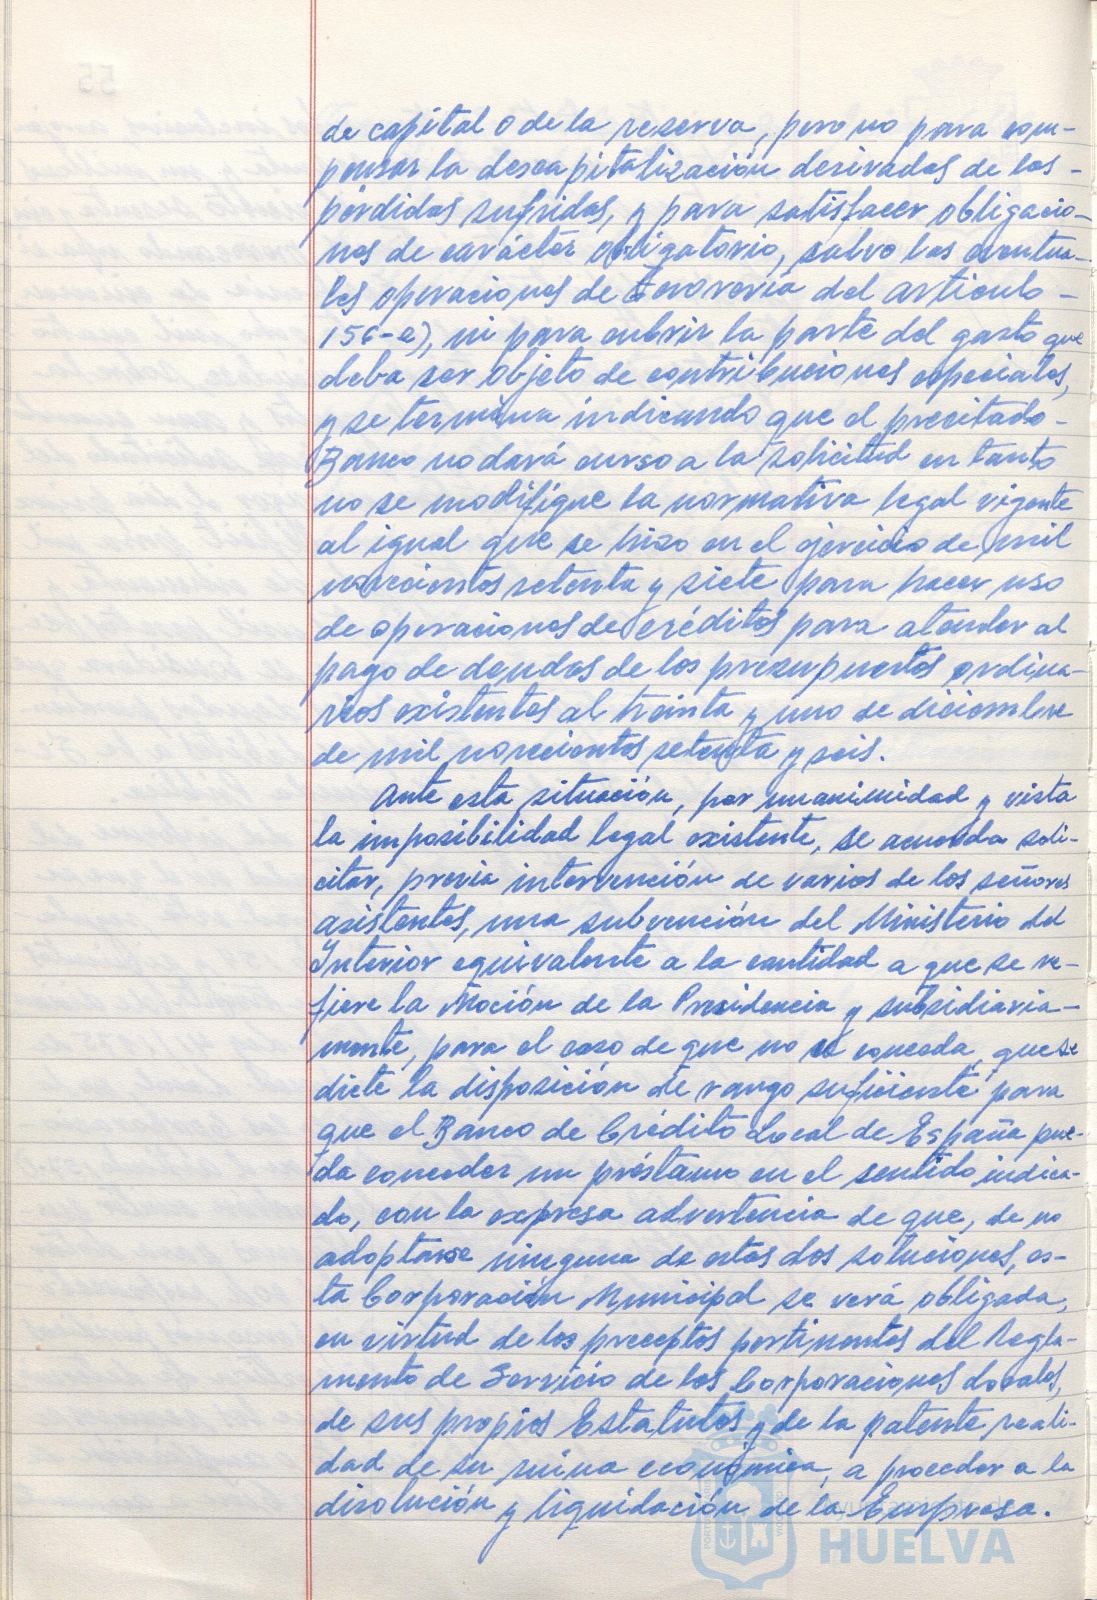 de capital o de la reserva, pero no para com-
pensar la descapitalización derivadas de las -
pérdidas sufridas, y para satisfacer obligacio-
nes de carácter obligatorio, salvo las eventua-
les operaciones de Tesorería del artículo -
156-e), ni para cubrir la parte del gasto que
deba ser objeto de contribuciones especiales,
y se termina indicando que el precitado -
Banco no dará curso a la solicitud en tanto
no se modifíque la normativa legal vigente
al igual que se hizo en el ejercicio de mil
novecientos setenta y siete para hacer uso
de operaciones de créditos para atender al
pago de deudas de los presupuestos ordina-
rios existentes al treinta y uno de diciembre
de mil novecientos setenta y seis.
Ante esta situación, por unanimidad y vista
la imposibilidad legal existente, se acuerda soli-
citar, previa intervención de varios de los señores
asistentes, una subvención del Ministerio del
Interior equivalente a la cantidad a que se re-
fiere la Moción de la Presidencia y subsidiaria-
mente, para el caso de que no se conceda, que se
dicte la disposición de rango suficiente para
que el Banco de Crédito Local de España pue-
da conceder un préstamo en el sentido indica-
do, con la expresa advertencia de que, de no
adoptarse ninguna de estas dos soluciones, es-
ta Corporación Municipal se verá obligada,
en virtud de los preceptos pertinentes del Regla-
mento de Servicio de las Corporaciones Locales,
de sus propios Estatutos y de la patente reali-
dad de su ruina económica, a proceder a la
disolución y liquidación de la Empresa.
HUELVA